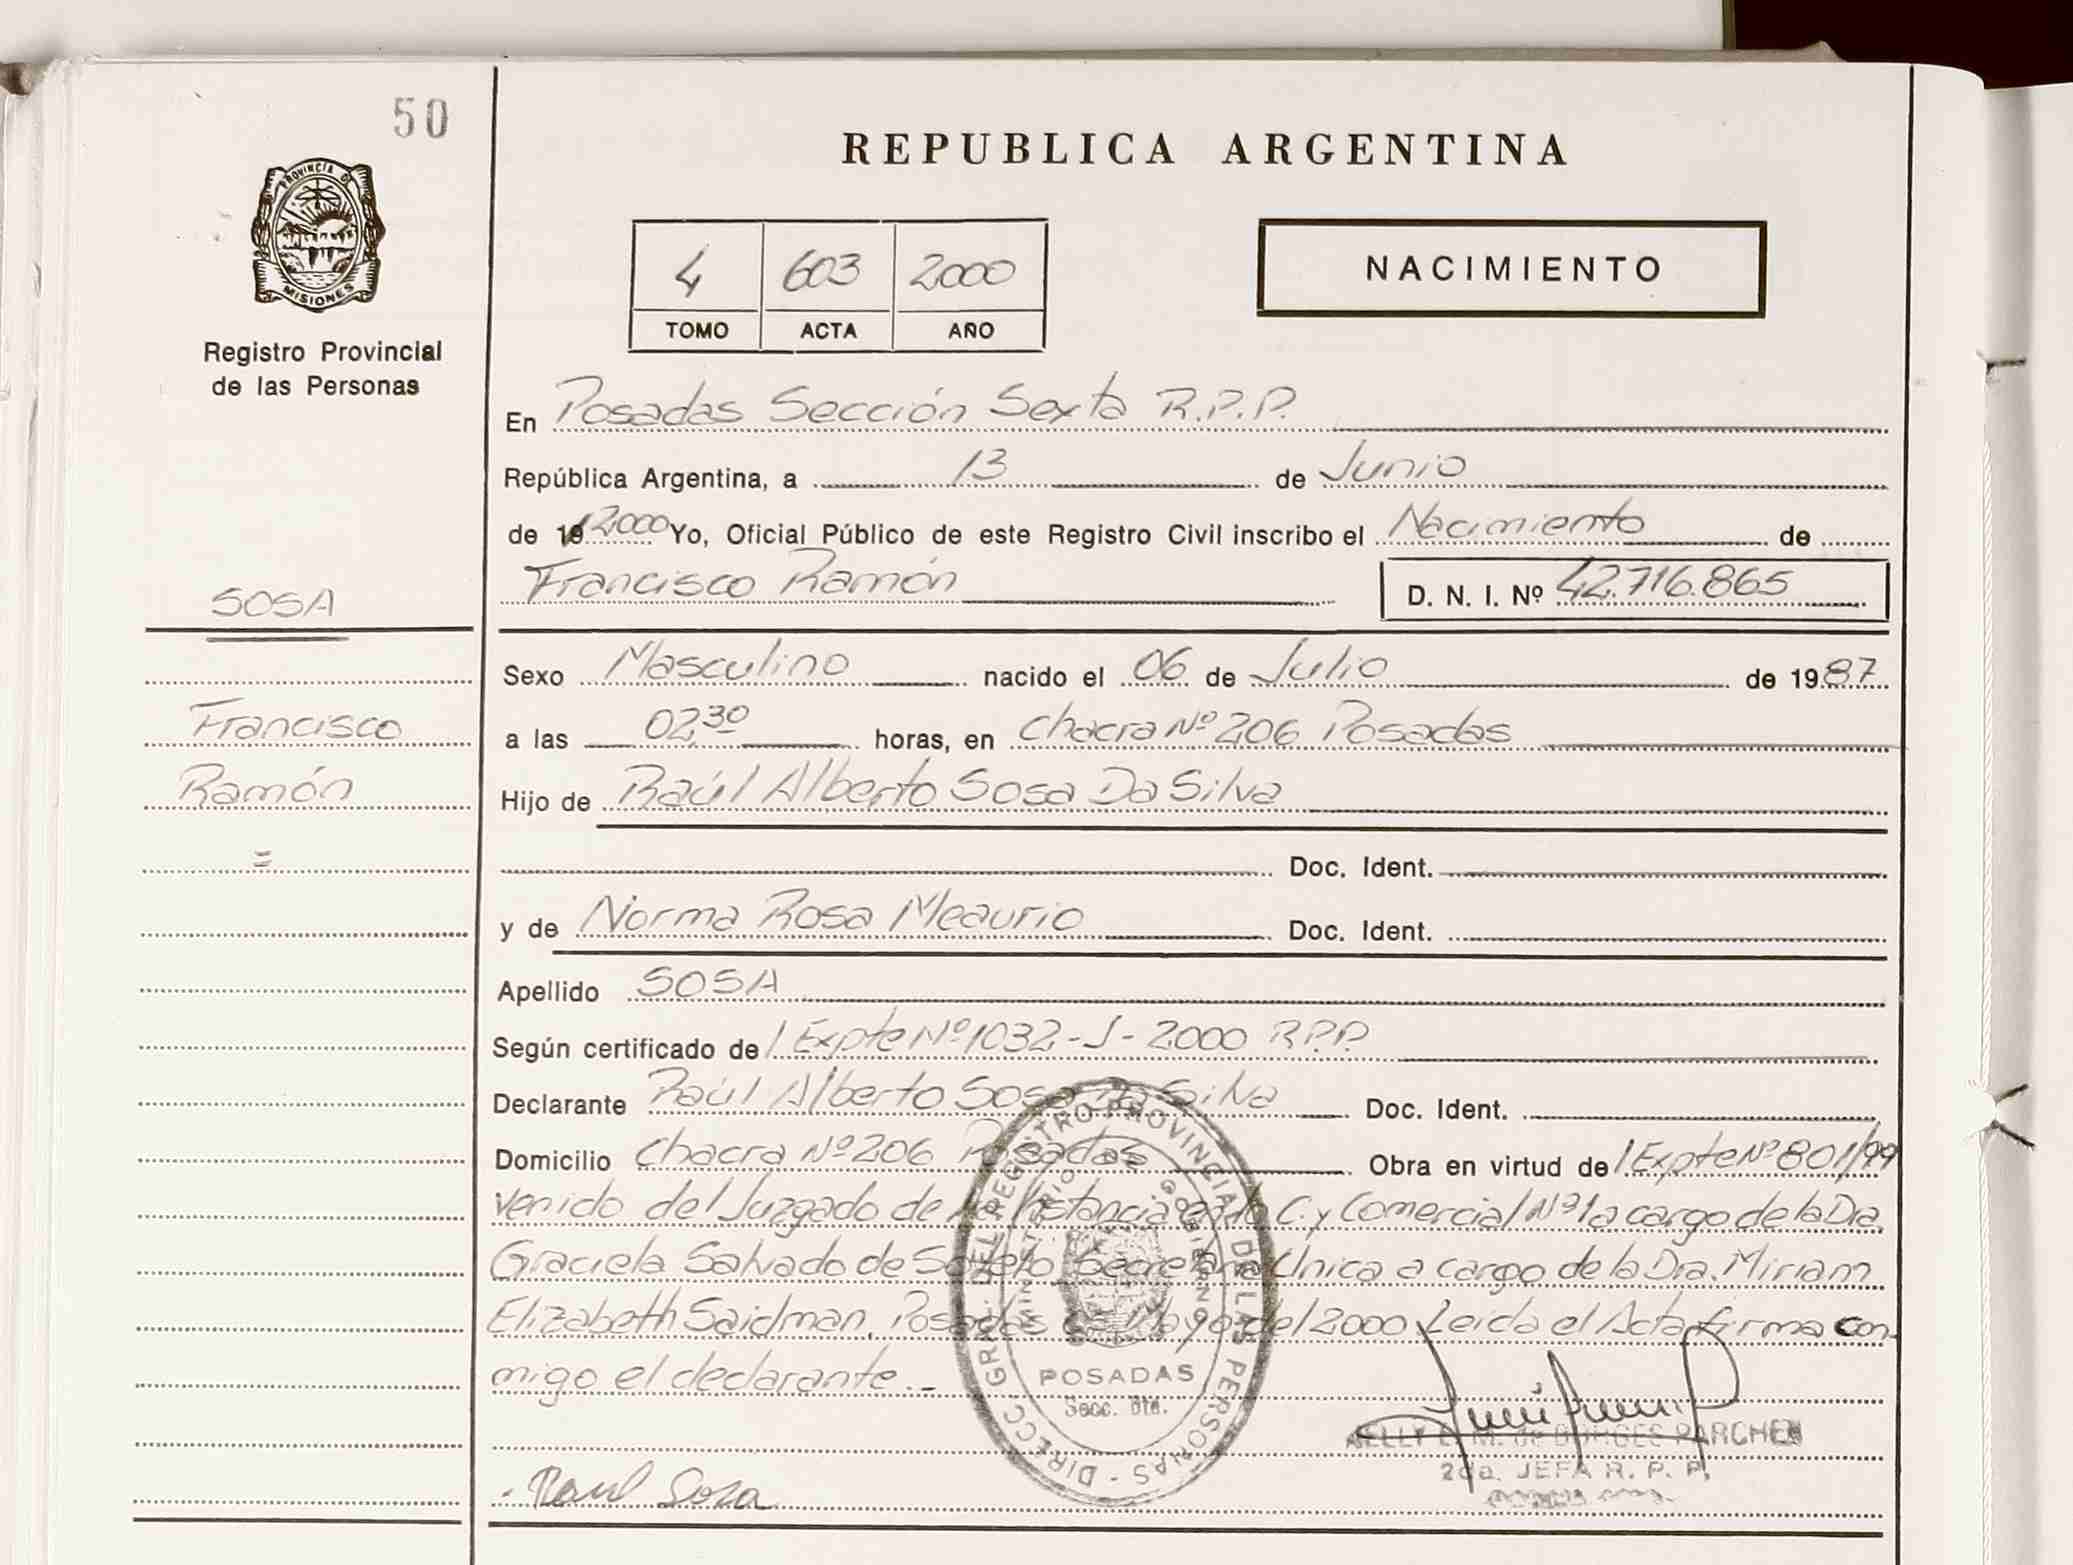 50
REPUBLICA ARGENTINA
PROVINCIA D
MISIONES
Registro Provincial
de las Personas
4 603 2000
TOMO ACTA AÑO
NACIMIENTO
En Posadas Sección Sexta R.P.P.
República Argentina, a 13 de Junio
de 19 2000 Yo, Oficial Público de este Registro Civil inscribo el Nacimiento de
Francisco Ramón D. N. I. Nº 42.716.865
SOSA
Francisco
Ramón
=
Sexo Masculino nacido el 06 de Julio de 1987
a las 02,30 horas, en Chacra Nº 206 Posadas
Hijo de Raúl Alberto Sosa Da Silva
Doc. Ident.
y de Norma Rosa Meaurio Doc. Ident.
Apellido SOSA
Según certificado de / Expte Nº 1032-J-2000 R.P.P.
Declarante Raúl Alberto Sosa Da Silva Doc. Ident.
Domicilio Chacra Nº 206 Posadas Obra en virtud de / Expte Nº 801/99
venido del Juzgado de Instancia en lo C. y Comercial Nº 1 a cargo de la Dra.
Graciela Salvado de Secretaria Única a cargo de la Dra. Miriam
Elizabeth Saidman, Posadas Mayo del 2000 Leida el Acta firma con-
migo el declarante.-
DIRECC. GRAL. DEL REGISTRO PROVINCIAL DE LAS PERSONAS
MINISTERIO GOBIERNO
POSADAS
Secc. 6ta.
NELLY E. M. de BORGES PARCHEN
2da. JEFA R. P. P.
Raul Sosa